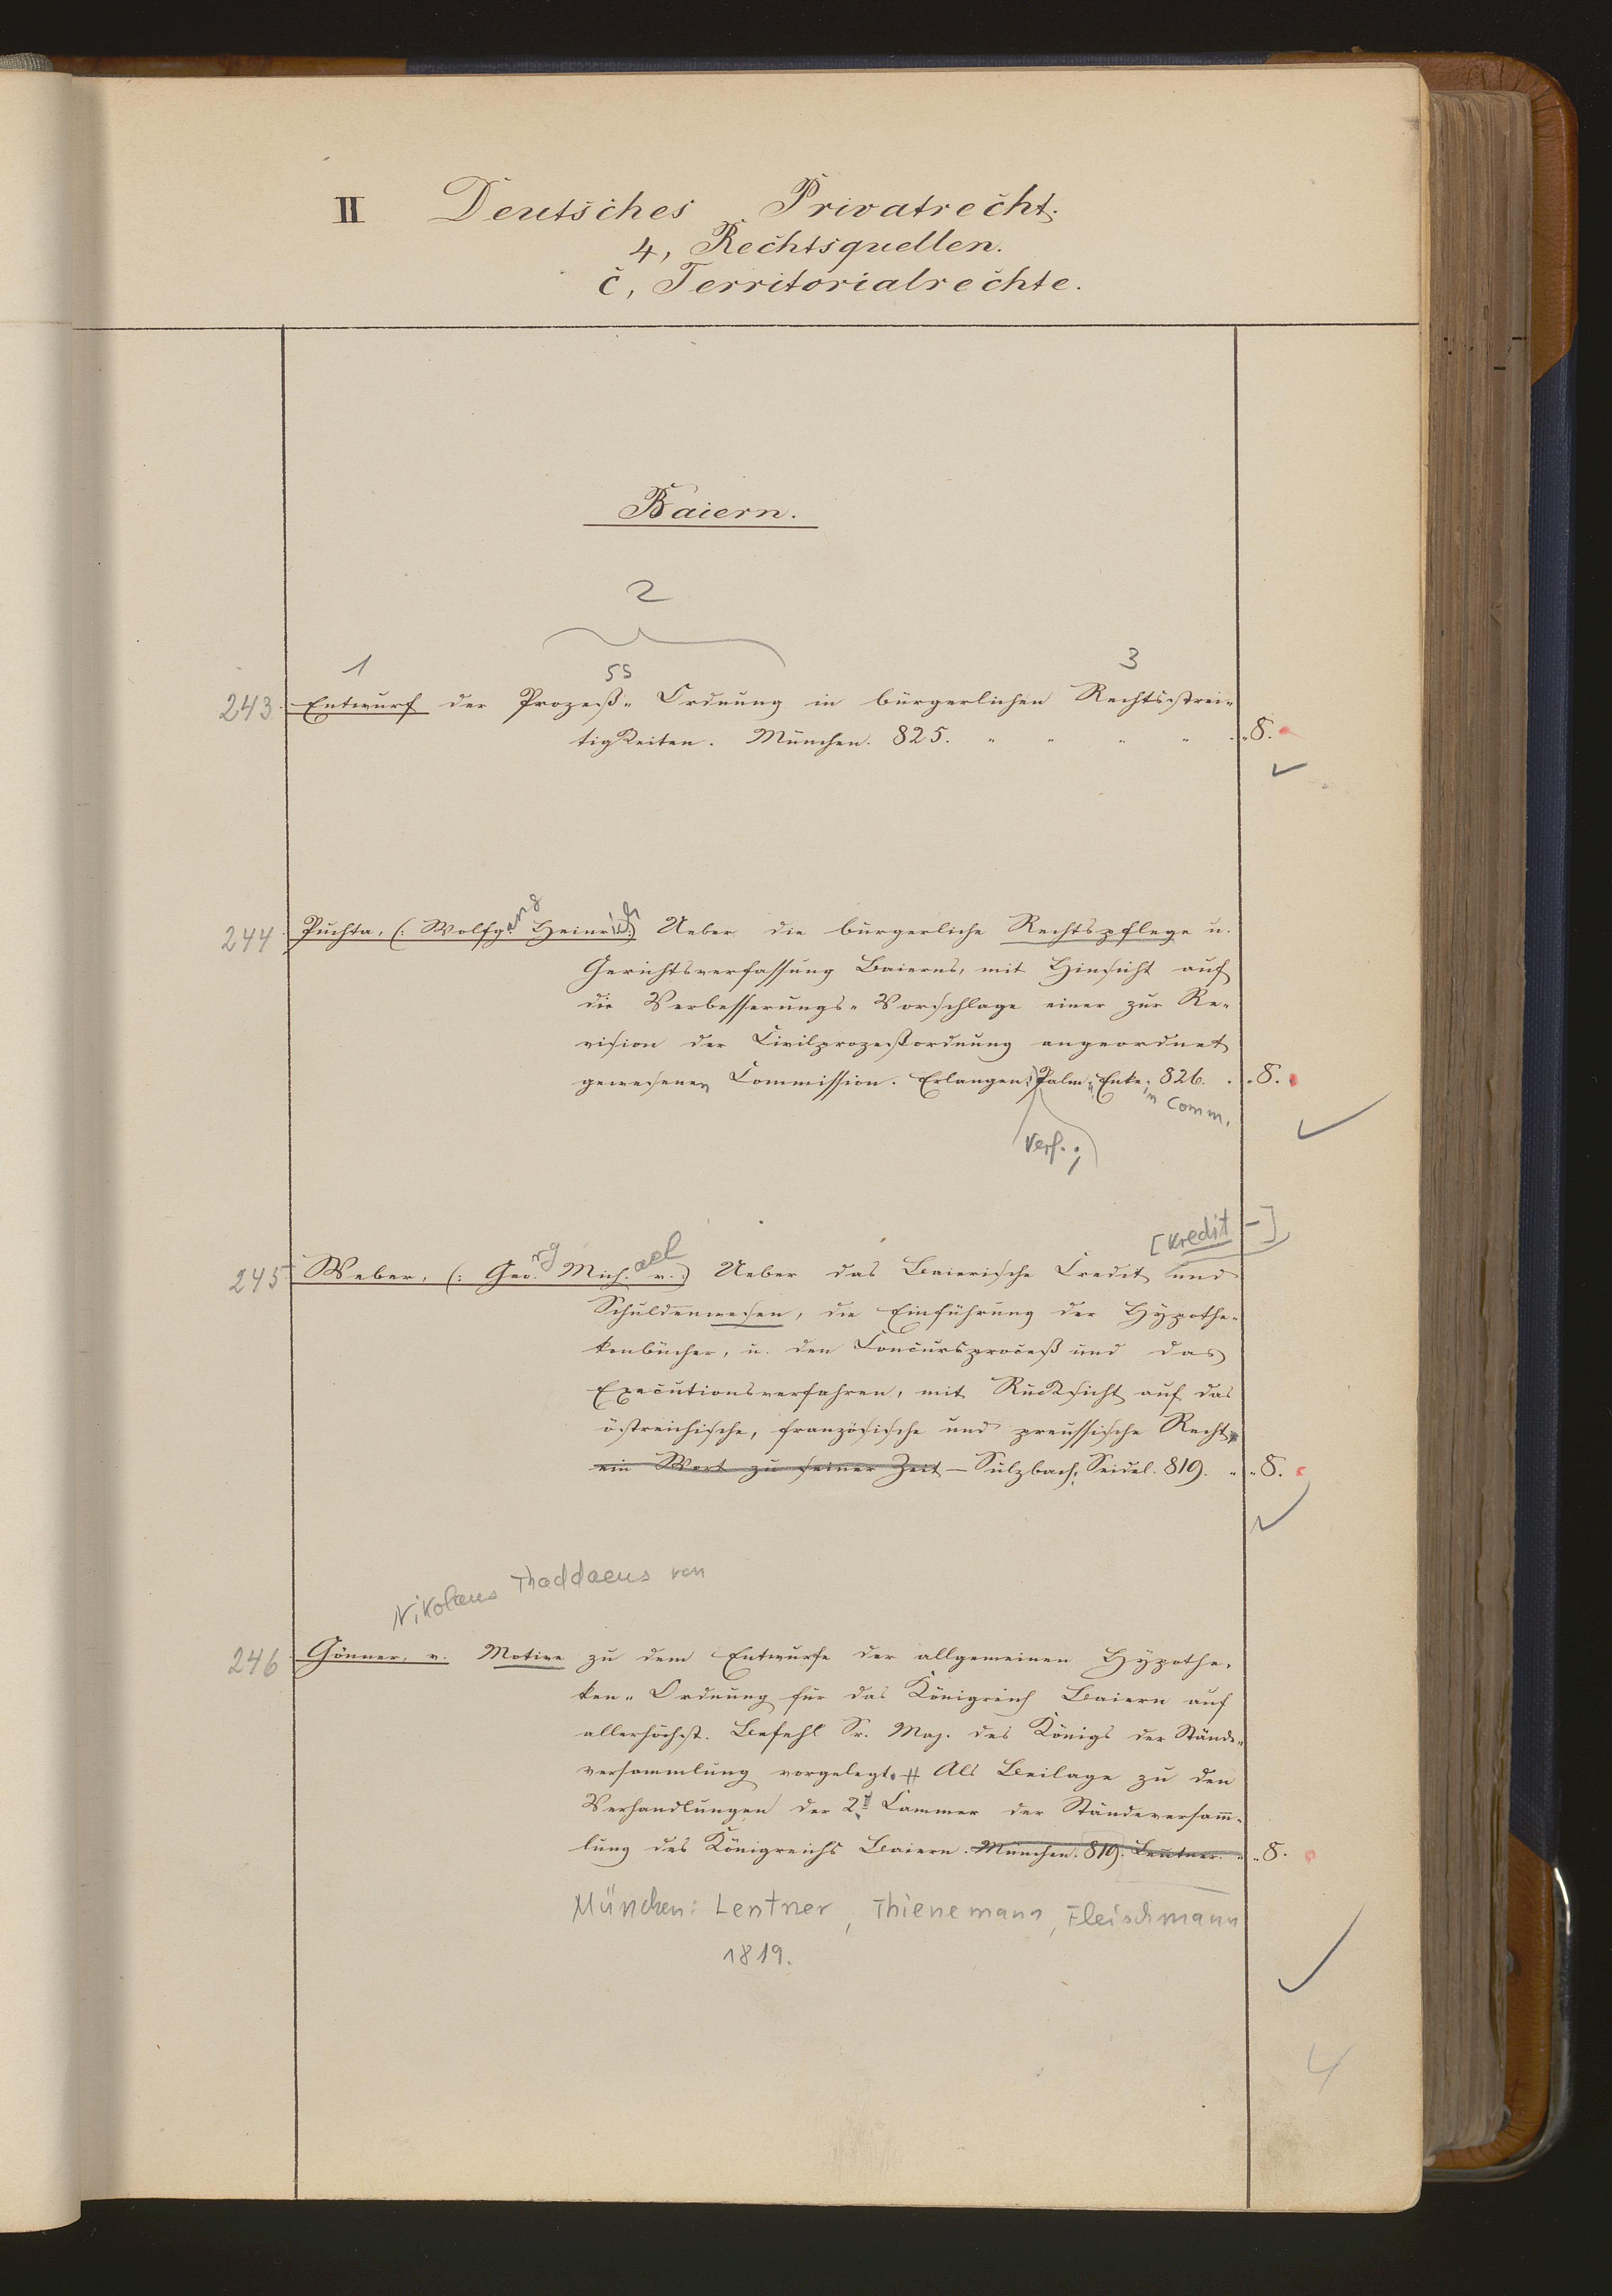 II Deutsches Privatrecht.
4, Rechtsquellen.
c, Territorialrechte.
Baiern.
2
1 ss 3
243. Entwurf der Prozeß-Ordnung in bürgerlichen Rechtsstrei-
tigkeiten. München. 825. " " " " " 8.
244. Puchta, (: Wolfgang Heinrich:) Ueber die bürgerliche Rechtspflege u.
Gerichtsverfassung Baierns, mit Hinsicht auf
die Verbesserungs-Vorschlage einer zur Re-
vision der Civilprozeßordnung angeordnet
gewesenen Commission. Erlangen: Palm u. Enke. 826. . . 8.
in Comm.
Verf.;
[Kredit-]
245 Weber, (: Georg Michael v.:) Ueber das Baierische Credit und
Schuldenwesen, die Einführung der Hypothe-
kenbücher, u. den Concursproceß und das
Executionsverfahren, mit Rücksicht auf das
östreichische, französische und preussische Recht,
ein Wort zu seiner Zeit – Sulzbach: Seidel. 819. " " 8.
Nikolaus Thaddaeus von
246 Gönner, v. Motive zu dem Entwurfe der allgemeinen Hypothe-
ken-Ordnung für das Königreich Baiern auf
allerhöchst. Befehl Sr. Maj. des Königs der Stände-
versammlung vorgelegt. # Als Beilage zu den
Verhandlungen der 2t Cammer der Ständeversam̅-
lung des Königreichs Baiern. München. 819. Leutner. " " 8.
München: Lentner, Thienemann, Fleischmann
1819.
4